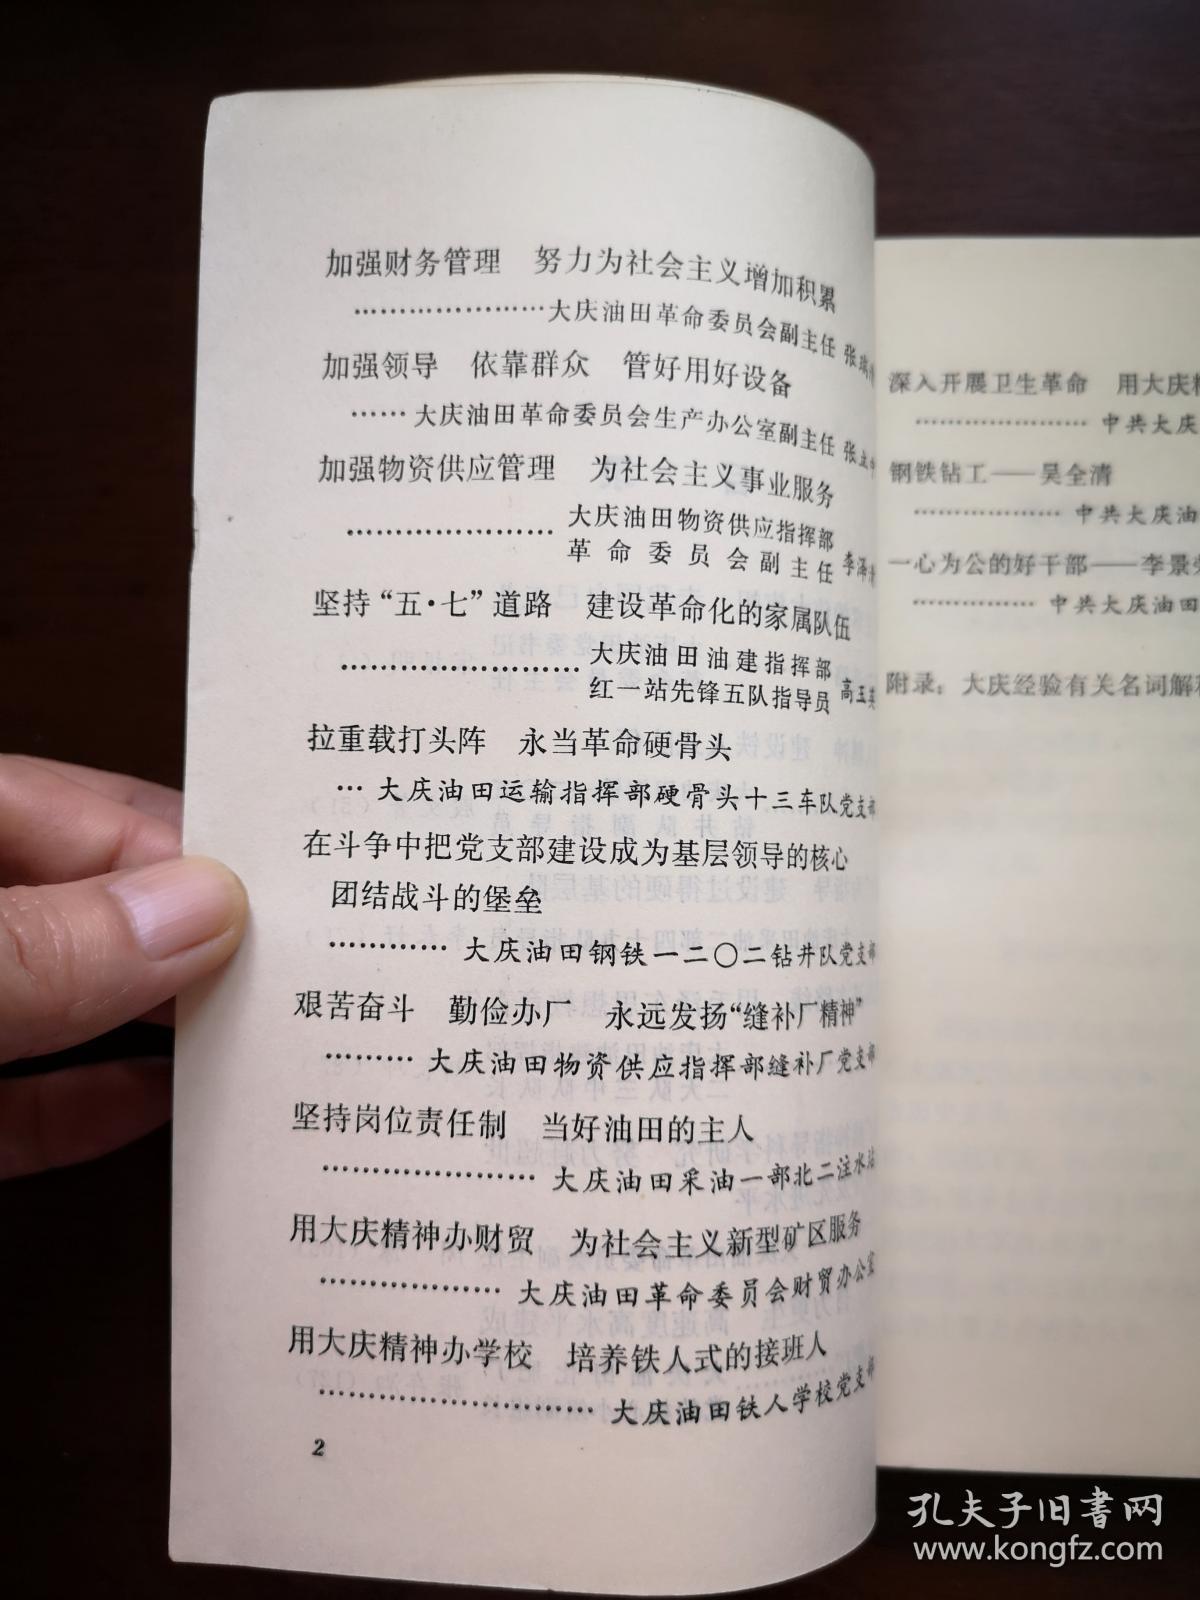 加强财务管理　努力为社会主义增加积累
……………………大庆油田革命委员会副主任 张瑞
加强领导　依靠群众　管好用好设备
……大庆油田革命委员会生产办公室副主任 张
加强物资供应管理　为社会主义事业服务
……………………大庆油田物资供应指挥部
革命委员会副主任 李泽
坚持“五·七”道路　建设革命化的家属队伍
………………………大庆油田油建指挥部
红一站先锋五队指导员 高玉英
拉重载打头阵　永当革命硬骨头
…大庆油田运输指挥部硬骨头十三车队党支部
在斗争中把党支部建设成为基层领导的核心
团结战斗的堡垒
…………大庆油田钢铁一二〇二钻井队党支部
艰苦奋斗　勤俭办厂　永远发扬“缝补厂精神”
………大庆油田物资供应指挥部缝补厂党支部
坚持岗位责任制　当好油田的主人
…………………大庆油田采油一部北二注水站
用大庆精神办财贸　为社会主义新型矿区服务
………………大庆油田革命委员会财贸办公室
用大庆精神办学校　培养铁人式的接班人
………………………大庆油田铁人学校党支部
2
深入开展卫生革命　用大庆
…………………中共大庆
钢铁钻工——吴全清
………………中共大庆油
一心为公的好干部——李景
……………中共大庆油田
附录：大庆经验有关名词解
孔夫子旧书网
www.kongfz.com